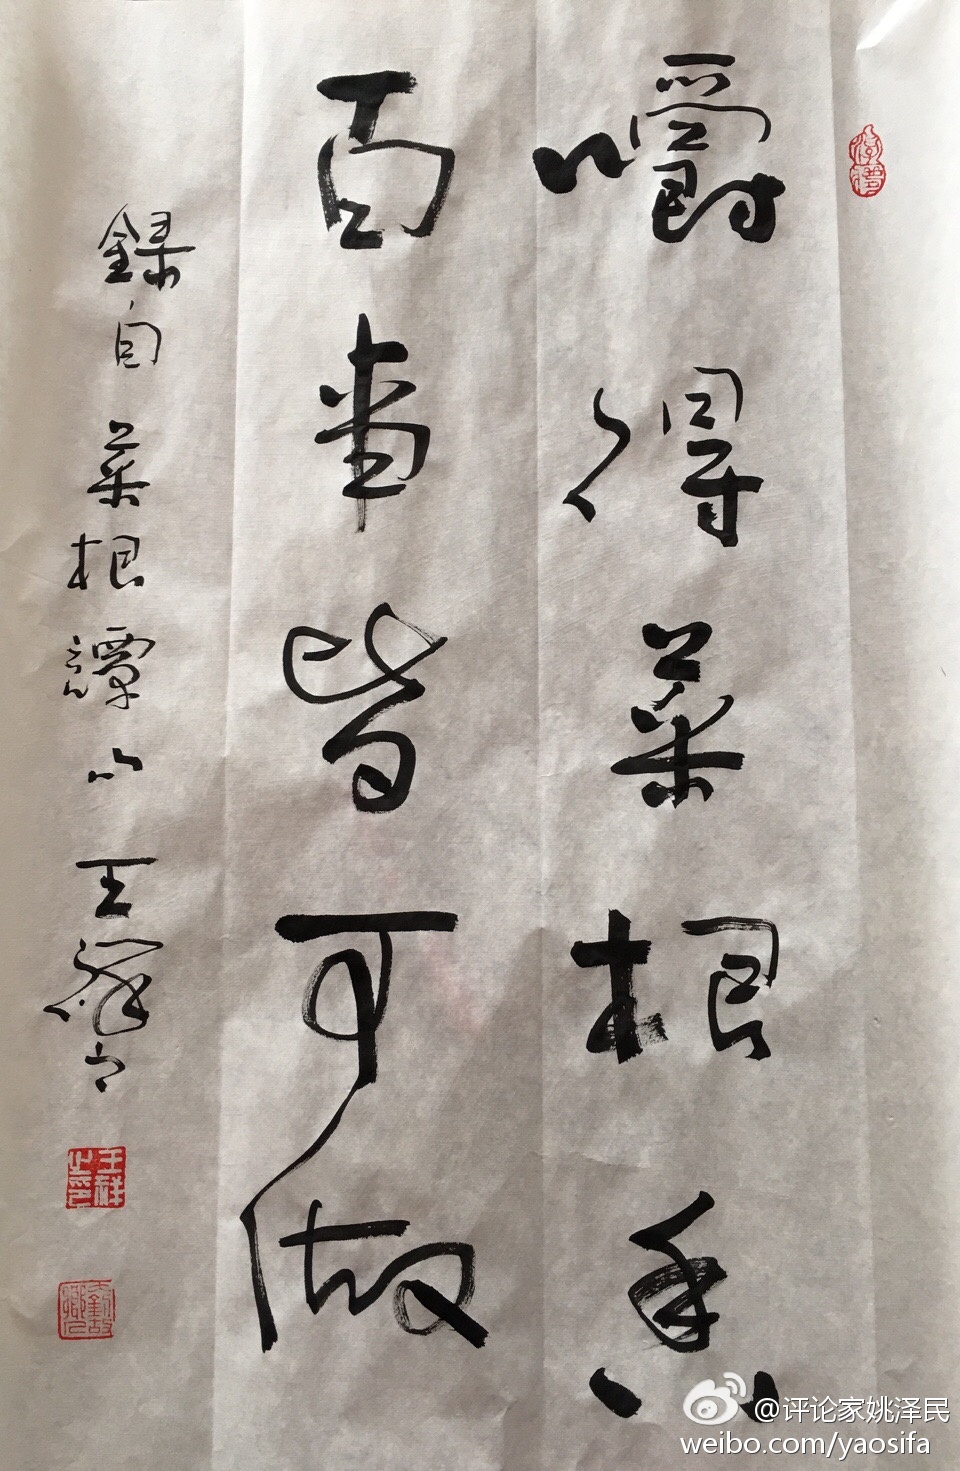 嚼得菜根香
百事皆可做
錄自菜根譚 王祥
王祥之印
@评论家姚泽民
weibo.com/yaosifa